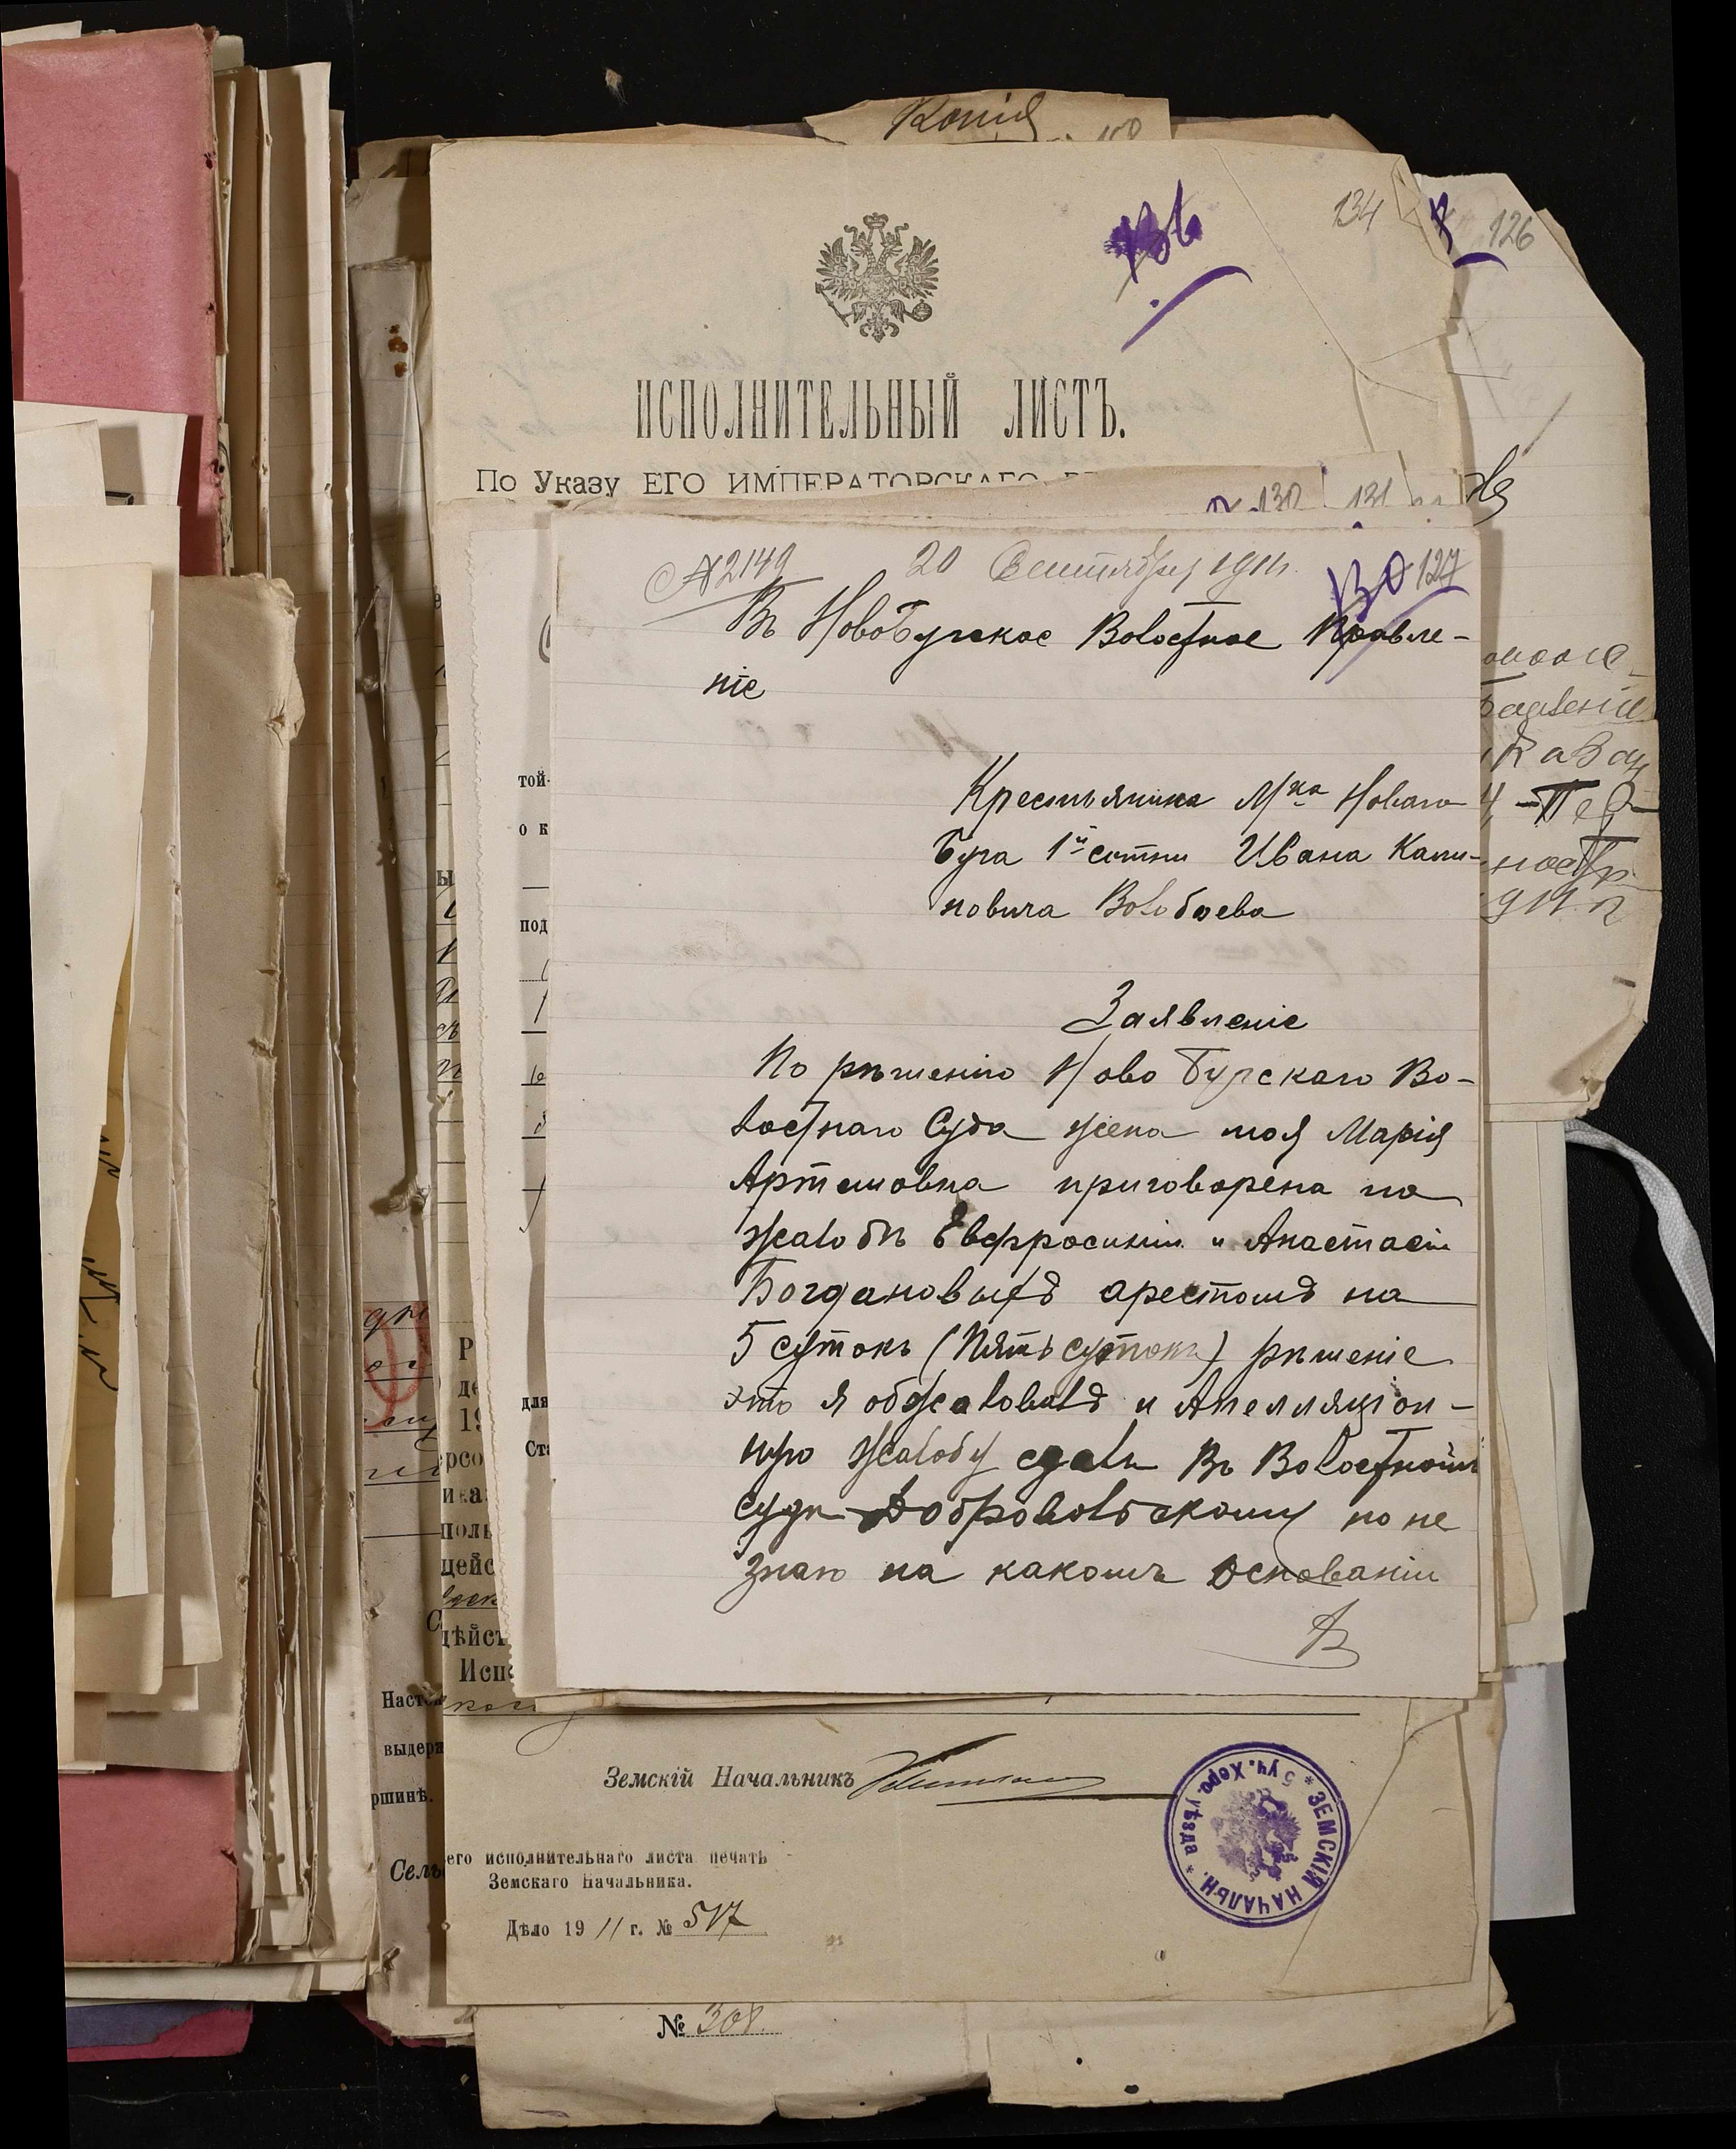 Копія
134
126
ИСПОЛНИТЕЛЬНЫЙ ЛИСТЪ.
По Указу ЕГО ИМПЕРАТОРСКАГО
130 131
№ 2149 20 Сентября 1911 г.
130 127
Въ НовоБугское Волостное Правле-
ніе
Крестьянина М-ка Новаго
Буга 1й сотни Ивана
новича
Заявленіе
По рѣшенію Ново Бугскаго Во-
лостнаго Суда жена моя Марія
Артемовна приговорена по
жалобѣ Евфросиніи и Анастасіи
Богдановыхъ арестомъ на
5 сутокъ (Пять сутокъ) рѣшеніе
это я обжаловалъ и Апелляціон-
ную жалобу сдалъ Въ Волостномъ
судѣ Добровольскому но не
знаю на какомъ основаніи
той-
о к
под
для
Ста
Р
де
19
рсо
ика
поль
цейс
дѣйст
Испо
Насто
выдерж
ршинѣ.
Сель
Земскій Начальникъ
* ЗЕМСКІЙ НАЧАЛЬН. * 5 уч. Херс. уѣзда
его исполнительнаго листа печать
Земскаго Начальника.
Дѣло 1911 г. № 517
№ 308.